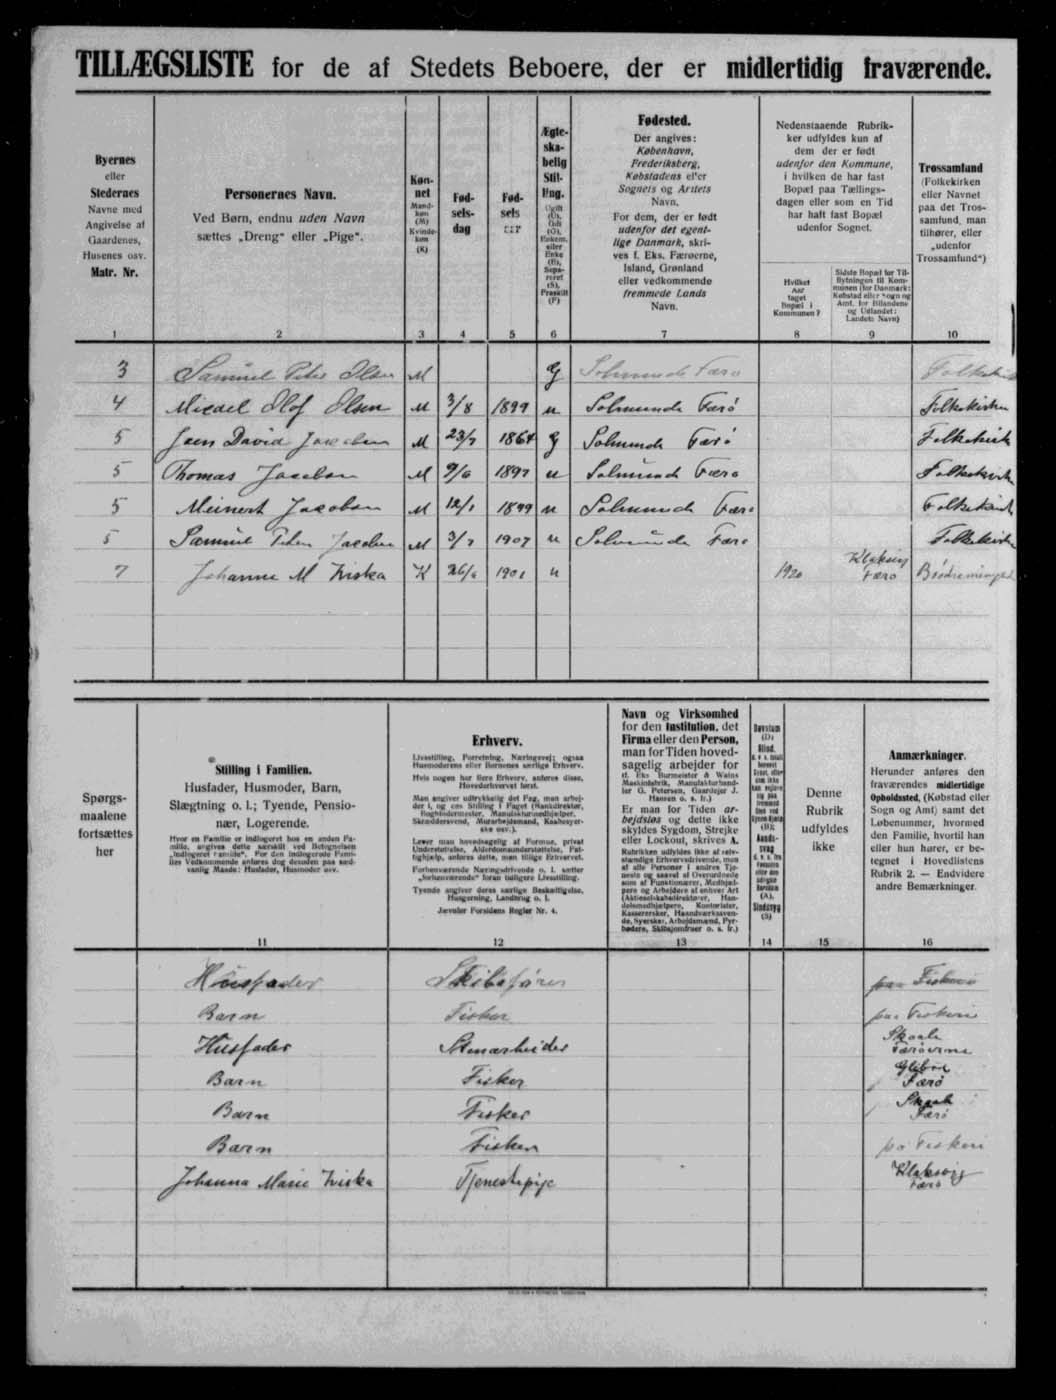 TILLÆGSLISTE for de af Stedets Beboere, der er midlertidig fraværende.
Byernes
eller
Stedernes
Navne med
Angivelse af
Gaardenes,
Husenes osv.
Matr. Nr.
1
Personernes Navn.
Ved Børn, endnu uden Navn
sættes „Dreng“ eller „Pige“.
2
Køn-
net
Mand-
køn
(M)
Kvinde-
køn
(K)
3
Fød-
sels-
dag
4
Fød-
sels
5
Ægte-
ska-
belig
Stil-
ling.
Ugift
(U),
Gift
(G),
Enkem.
eller
Enke
(E),
Sepa-
reret
(S),
Fraskilt
(F)
6
Fødested.
Der angives:
København,
Frederiksberg,
Købstadens eller
Sognets og Amtets
Navn.
For dem, der er født
udenfor det egent-
lige Danmark, skri-
ves f. Eks. Færøerne,
Island, Grønland
eller vedkommende
fremmede Lands
Navn.
7
Nedenstaaende Rubrik-
ker udfyldes kun af
dem der er født
udenfor den Kommune,
i hvilken de har fast
Bopæl paa Tællings-
dagen eller som en Tid
har haft fast Bopæl
udenfor Sognet.
Hvilket
Aar
taget
Bopæl i
Kommunen?
8
Sidste Bopæl før Til-
flytningen til Kom-
munen (for Danmark:
Købstad eller Sogn og
Amt, for Bilandene
og Udlandet:
Landets Navn)
9
Trossamfund
(Folkekirken
eller Navnet
paa det Tros-
samfund, man
tilhører, eller
„udenfor
Trossamfund“)
10
3 Samuel Peter Olsen M G Solmunde Færø
4 Micael Olof Olsen M 3/8 1899 u Solmunde Færö Folkekirken
5 Joen David Jacobsen M 23/7 1864 G Solmunde Færö Folkekirk
5 Thomas Jacobsen M 9/6 1897 u Solmunde Færø Folkekirk
5 Meinert Jacobsen M 12/1 1899 u Solmunde Færø Folkekirk
5 Samuel Peter Jacobsen M 3/7 1907 u Solmunde Færø Folkekirke
7 Johanne M Ziska K 26/6 1901 u 1920 Klaksvig
Færø
Spørgs-
maalene
fortsættes
her
Stilling i Familien.
Husfader, Husmoder, Barn,
Slægtning o. l.; Tyende, Pensio-
nær, Logerende.
Hvor en Familie er indlogeret hos en anden Fa-
milie, angives dette særskilt ved Betegnelsen
„Indlogeret Familie“. For den indlogerede Fami-
lies Vedkommende anføres dog desuden paa sæd-
vanlig Maade: Husfader, Husmoder osv.
11
Erhverv.
Livsstilling, Forretning, Næringsvej; ogsaa
Husmoderens eller Børnenes særlige Erhverv.
Hvis nogen har flere Erhverv, anføres disse,
Hovederhvervet først.
Man angiver udtrykkelig det Fag, man arbej-
der i, og ens Stilling i Faget (Bankdirektør,
Bogbindermester, Manufakturhandler,
Skræddersvend, Murarbejdsmand, Kasserer-
ske osv.).
Lever man hovedsagelig af Formue, privat
Understøttelse, Alderdomsunderstøttelse, Fat-
tighjælp, anføres dette, man tillige Erhvervet.
Forhenværende Næringsdrivende o. l. sætter
„forhenværende“ foran tidligere Livsstilling.
Tyende angiver deres særlige Beskæftigelse,
Husgerning, Landbrug o. l.
Jævnfør Forsidens Regler Nr. 4.
12
Navn og Virksomhed
for den Institution, det
Firma eller den Person,
man for Tiden hoved-
sagelig arbejder for
(f. Eks. Burmeister & Wains
Maskinfabrik, Manufakturhand-
ler G. Petersen, Gaardejer J.
Hansen o. s. fr.)
Er man for Tiden ar-
bejdsløs og dette ikke
skyldes Sygdom, Strejke
eller Lockout, skrives A.
Rubrikken udfyldes ikke af selv-
stændige Erhvervsdrivende, men
af alle Personer i andres Tje-
neste og saavel af Overordnede
som af Funktionærer, Medhjæl-
pere og Arbejdere af enhver Art
(Aktieselskabsdirektører, Han-
delsmedhjælpere, Kontorister,
Kassererske, Haandværkssven-
de, Syersker, Arbejdsmænd, Fyr-
bødere, Skibsjomfruer o. s. fr.)
13
Døvstum
(D)
Blind
14
Denne
Rubrik
udfyldes
ikke
15
Anmærkninger.
Herunder anføres den
fraværendes midlertidige
Opholdssted, (Købstad eller
Sogn og Amt) samt det
Løbenummer, hvormed
den Familie, hvortil han
eller hun hører, er be-
tegnet i Hovedlistens
Rubrik 2. — Endvidere
andre Bemærkninger.
16
Husfader Skibsfører paa Fiskeri
Barn Fisker paa Fiskeri
Husfader Stenarbeider Skaale
Færøerne
Barn Fisker Færø
Barn Fisker Skaale
Færø
Barn Fisker pa Fiskeri
Johanna Marie Ziska Tjenestepige Klaksvig
Færø